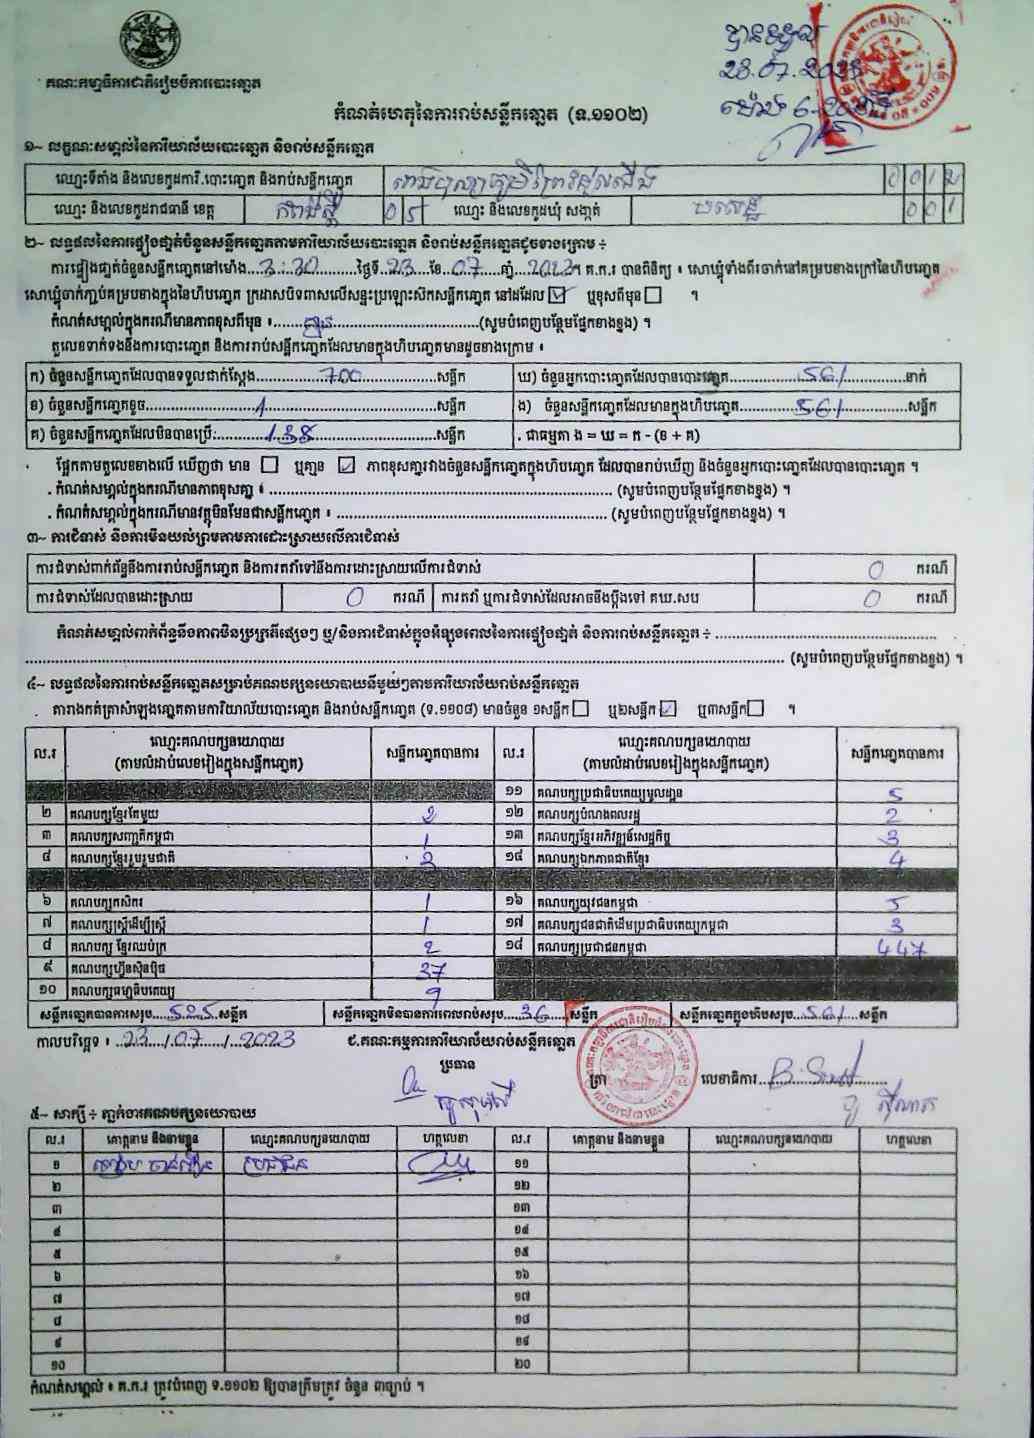 គណៈកម្មាធិការជាតិរៀបចំការបោះឆ្នោត
បានទទួល
កំណត់ហេតុនៃការរាប់សន្លឹកឆ្នោត (ទ.១១០២)
១~ លក្ខណៈសម្គាល់នៃការិយាល័យបោះឆ្នោត និងរាប់សន្លឹកឆ្នោត
ឈ្មោះទីតាំង និងលេខកូដការិ.បោះឆ្នោត និងរាប់សន្លឹកឆ្នោត
ឈ្មោះ និងលេខកូដរាជធានី ខេត្ត 05 ឈ្មោះ និងលេខកូដឃុំ សង្កាត់ 001
២~ លទ្ធផលនៃការផ្ទៀងផ្ទាត់ចំនួនសន្លឹកឆ្នោតតាមការិយាល័យបោះឆ្នោត និងរាប់សន្លឹកឆ្នោតដូចខាងក្រោម ÷
ការផ្ទៀងផ្ទាត់ចំនួនសន្លឹកឆ្នោតនៅម៉ោង...3:30...ថ្ងៃទី.23.ខែ.07.ឆ្នាំ.2023។ គ.ក.រ បានពិនិត្យ ៖ សោឃ្លុំទាំងពីរចាក់នៅគម្របខាងក្រៅនៃហិបឆ្នោត
សោឃ្លុំចាក់ភ្ជាប់គម្របខាងក្នុងនៃហិបឆ្នោត ក្រដាសបិទពាសលើសន្ទះប្រឡោះសិកសន្លឹកឆ្នោត នៅដដែល ☑ ឬខុសពីមុន ☐ ។
កំណត់សម្គាល់ក្នុងករណីមានភាពខុសពីមុន ៖...គ្មាន...(សូមបំពេញបន្ថែមផ្នែកខាងខ្នង) ។
តួលេខទាក់ទងនឹងការបោះឆ្នោត និងការរាប់សន្លឹកឆ្នោតដែលមានក្នុងហិបឆ្នោតមានដូចខាងក្រោម ៖
ក) ចំនួនសន្លឹកឆ្នោតដែលបានទទួលជាក់ស្តែង...700...សន្លឹក ឃ) ចំនួនអ្នកបោះឆ្នោតដែលបានបោះឆ្នោត...561...នាក់
ខ) ចំនួនសន្លឹកឆ្នោតខូច...1...សន្លឹក ង) ចំនួនសន្លឹកឆ្នោតដែលមានក្នុងហិបឆ្នោត...561...សន្លឹក
គ) ចំនួនសន្លឹកឆ្នោតដែលមិនបានប្រើ:...138...សន្លឹក . ជាធម្មតា ង = ឃ = ក - (ខ + គ)
ផ្អែកតាមតួលេខខាងលើ ឃើញថា មាន ☐ ឬគ្មាន ☑ ភាពខុសគ្នារវាងចំនួនសន្លឹកឆ្នោតក្នុងហិបឆ្នោត ដែលបានរាប់ឃើញ និងចំនួនអ្នកបោះឆ្នោតដែលបានបោះឆ្នោត ។
. កំណត់សម្គាល់ក្នុងករណីមានភាពខុសគ្នា ៖ ... (សូមបំពេញបន្ថែមផ្នែកខាងខ្នង) ។
. កំណត់សម្គាល់ក្នុងករណីមានវត្ថុមិនមែនជាសន្លឹកឆ្នោត ៖ ... (សូមបំពេញបន្ថែមផ្នែកខាងខ្នង) ។
៣~ ការជំទាស់ និងការមិនយល់ព្រមតាមការដោះស្រាយលើការជំទាស់
ការជំទាស់ពាក់ព័ន្ធនឹងការរាប់សន្លឹកឆ្នោត និងការតវ៉ាទៅនឹងការដោះស្រាយលើការជំទាស់ 0 ករណី
ការជំទាស់ដែលបានដោះស្រាយ 0 ករណី ការតវ៉ា ឬការជំទាស់ដែលអាចនឹងប្តឹងទៅ គឃ.សប 0 ករណី
កំណត់សម្គាល់ពាក់ព័ន្ធនឹងភាពមិនប្រក្រតីផ្សេងៗ ឬ/និងការជំទាស់ក្នុងអំឡុងពេលនៃការផ្ទៀងផ្ទាត់ និងការរាប់សន្លឹកឆ្នោត ÷ ...
... (សូមបំពេញបន្ថែមផ្នែកខាងខ្នង) ។
៤~ លទ្ធផលនៃការរាប់សន្លឹកឆ្នោតសម្រាប់គណបក្សនយោបាយនីមួយៗតាមការិយាល័យរាប់សន្លឹកឆ្នោត
តារាងកត់ត្រាសំឡេងឆ្នោតតាមការិយាល័យបោះឆ្នោត និងរាប់សន្លឹកឆ្នោត (ទ.១១០៨) មានចំនួន ១សន្លឹក ☐ ឬ២សន្លឹក ☑ ឬ៣សន្លឹក ☐ ។
ល.រ ឈ្មោះគណបក្សនយោបាយ (តាមលំដាប់លេខរៀងក្នុងសន្លឹកឆ្នោត) សន្លឹកឆ្នោតបានការ ល.រ ឈ្មោះគណបក្សនយោបាយ (តាមលំដាប់លេខរៀងក្នុងសន្លឹកឆ្នោត) សន្លឹកឆ្នោតបានការ
១១ គណបក្សប្រជាធិបតេយ្យមូលដ្ឋាន 5
២ គណបក្សខ្មែរតែមួយ 2 ១២ គណបក្សបំណងពលរដ្ឋ 2
៣ គណបក្សសញ្ជាតិកម្ពុជា 1 ១៣ គណបក្សខ្មែរអភិវឌ្ឍន៍សេដ្ឋកិច្ច 3
៤ គណបក្សខ្មែររួបរួមជាតិ 2 ១៤ គណបក្សឯកភាពជាតិខ្មែរ 4
៦ គណបក្សកសិករ 1 ១៦ គណបក្សយុវជនកម្ពុជា 5
៧ គណបក្សស្ត្រីដើម្បីស្ត្រី 1 ១៧ គណបក្សជនជាតិដើមប្រជាធិបតេយ្យកម្ពុជា 3
៨ គណបក្ស ខ្មែរឈប់ក្រ 2 ១៨ គណបក្សប្រជាជនកម្ពុជា 447
៩ គណបក្សហ៊្វុនស៊ិនប៉ិច 37
១០ គណបក្សធម្មាធិបតេយ្យ 9
សន្លឹកឆ្នោតបានការសរុប...525.សន្លឹក សន្លឹកឆ្នោតមិនបានការពេលរាប់សរុប...36...សន្លឹក សន្លឹកឆ្នោតក្នុងហិបសរុប...561...សន្លឹក
កាលបរិច្ឆេទ ៖ .23./07./.2023 ៩.គណៈកម្មការការិយាល័យរាប់សន្លឹកឆ្នោត
ប្រធាន ត្រា លេខាធិការ
៥~ សាក្សី ÷ ភ្នាក់ងារគណបក្សនយោបាយ
ល.រ គោត្តនាម និងនាមខ្លួន ឈ្មោះគណបក្សនយោបាយ ហត្ថលេខា ល.រ គោត្តនាម និងនាមខ្លួន ឈ្មោះគណបក្សនយោបាយ ហត្ថលេខា
១ ប្រជាជន ១១
២ ១២
៣ ១៣
៤ ១៤
៥ ១៥
៦ ១៦
៧ ១៧
៨ ១៨
៩ ១៩
១០ ២០
កំណត់សម្គាល់ ៖ គ.ក.រ ត្រូវបំពេញ ទ.១១០២ ឱ្យបានត្រឹមត្រូវ ចំនួន ៣ច្បាប់ ។